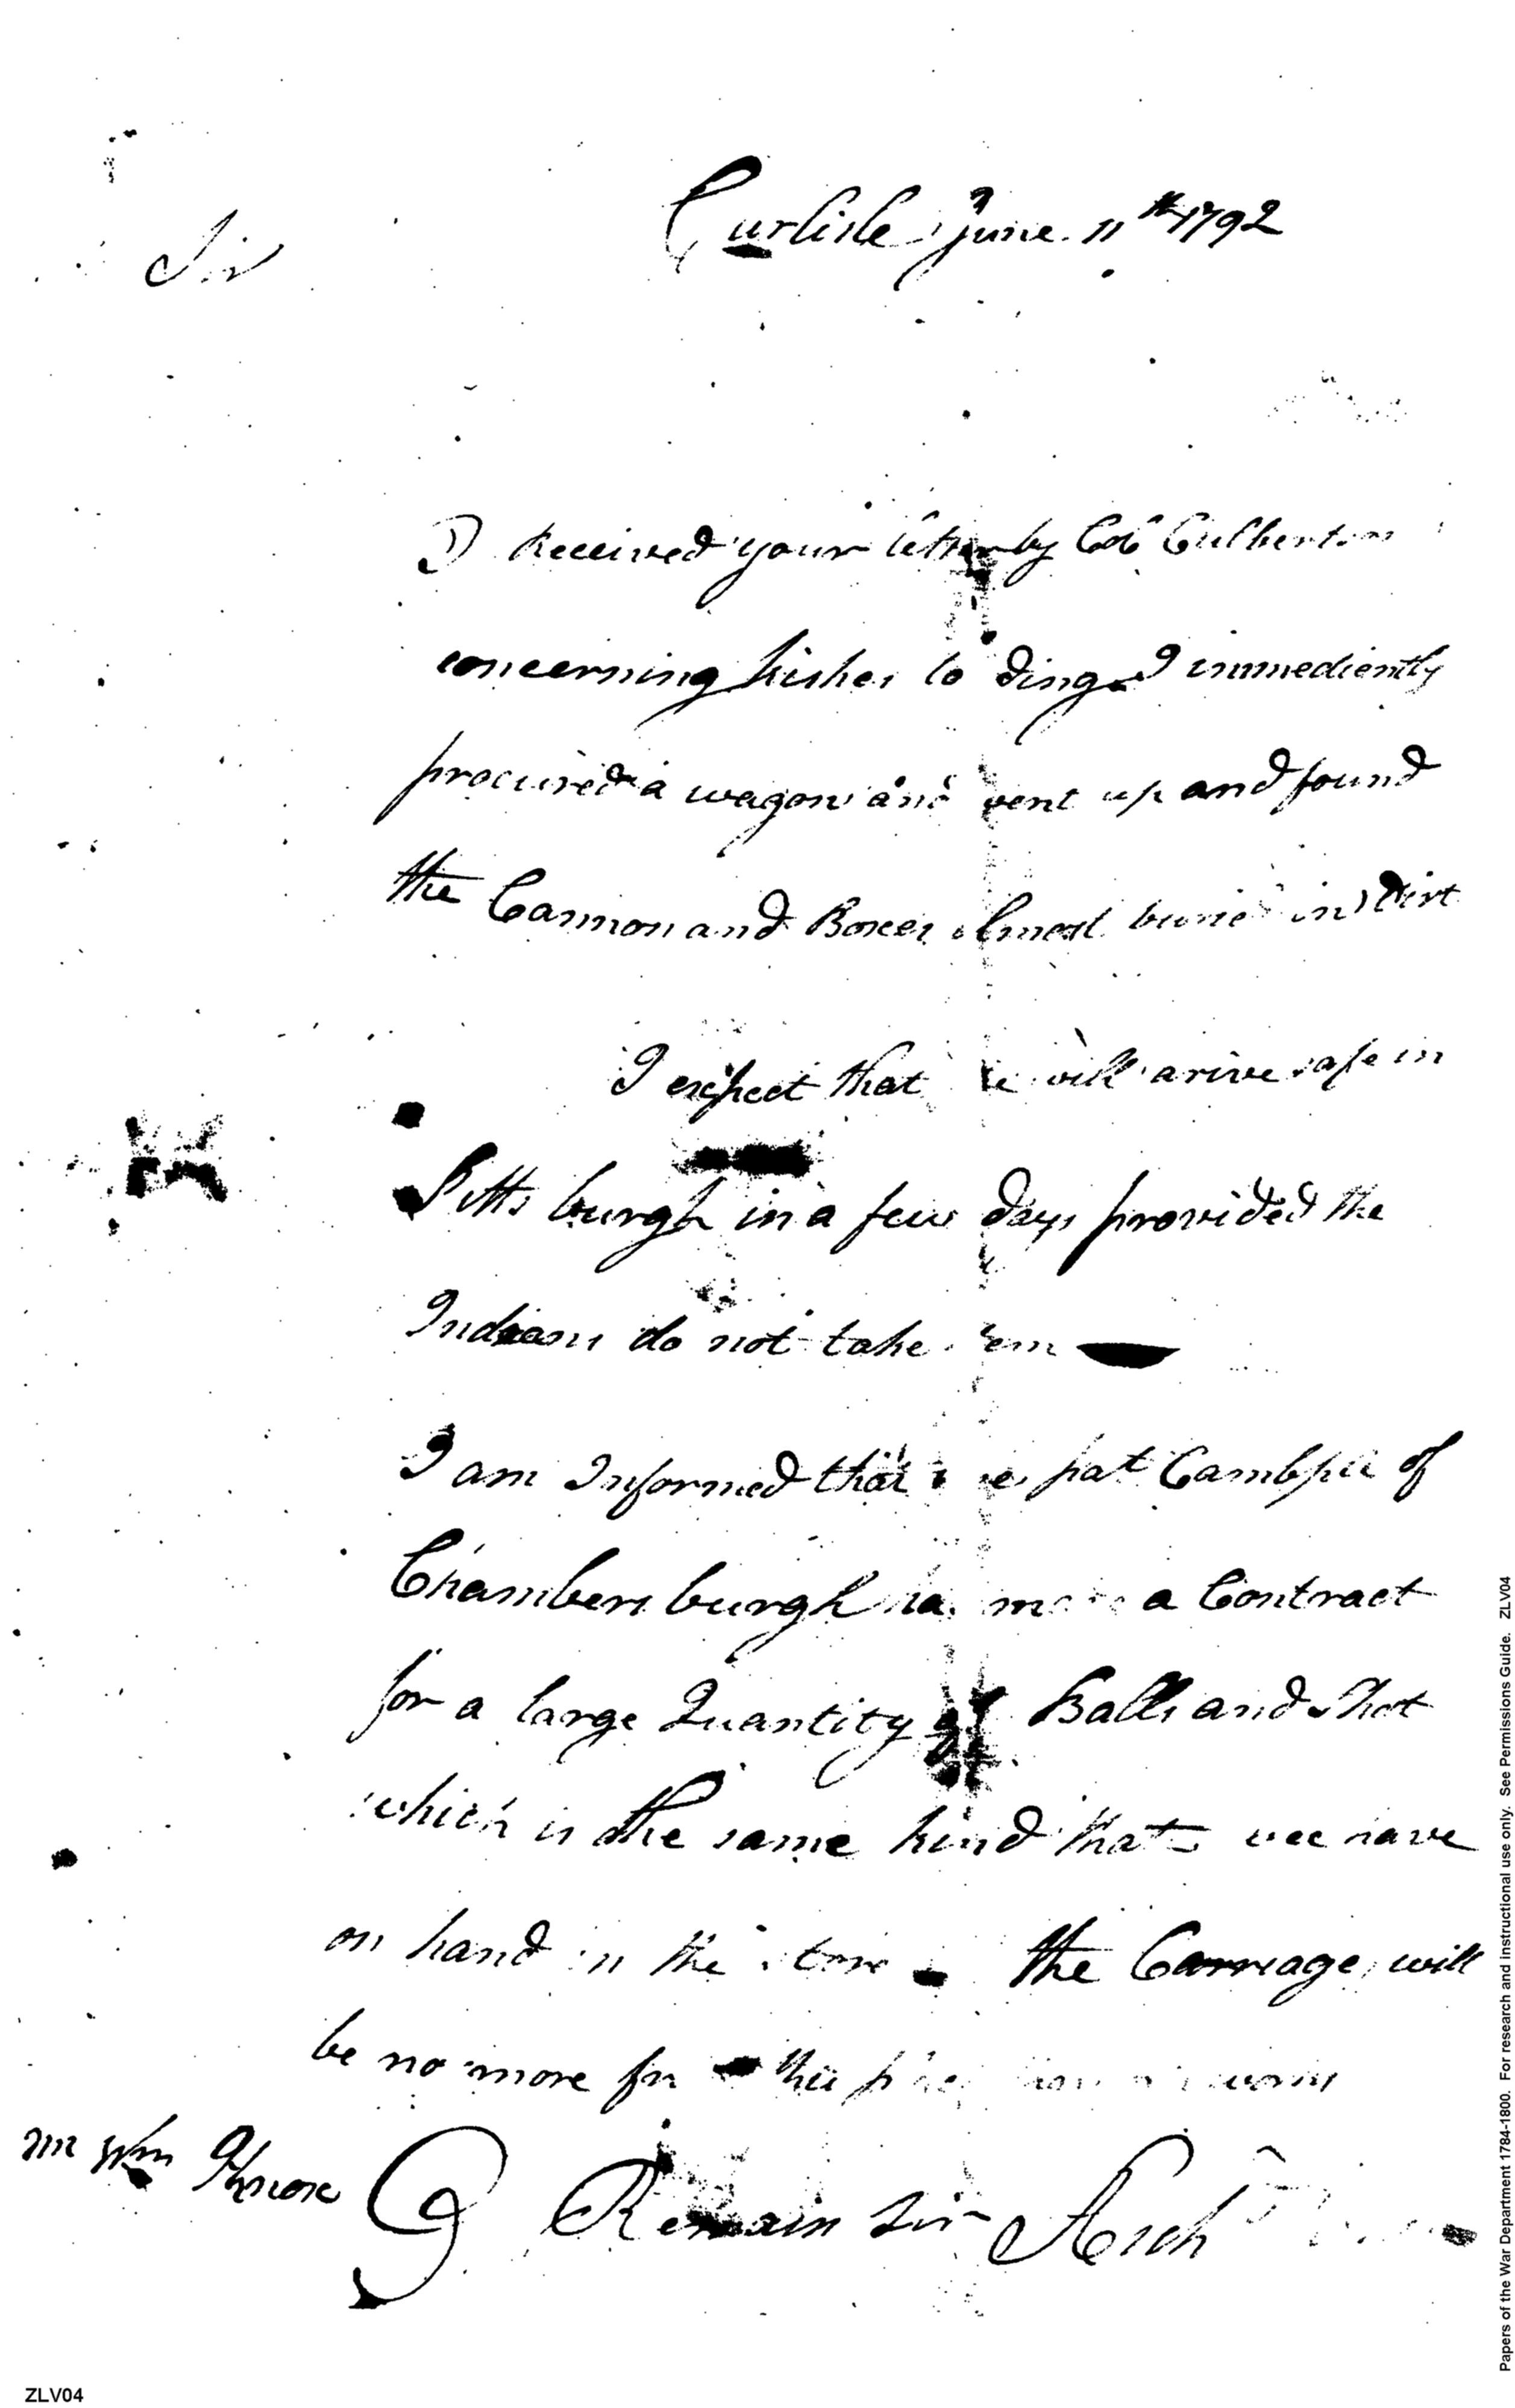 Carlisle June 11th 1792
Sir
I Received your letter by Col Culbertson
concerning Fishers lo ding I immediently
procured a wagon and went up and found
the Cannon and Boxes almost buried in Dirt
I expect that he will arive safe in
Pittsburgh in a few days provided the
Indians do not take em
I am Informed that pat Cambpil of
Chambersburgh has made a Contract
for a large Quantity of Balls and shot
which is the same kind that wee have
on hand in the store the Carriage will
be no more from this
Mr Wm Knox
I Remain Sir Arch
Papers of the War Department 1784-1800. For research and instructional use only. See Permissions Guide. ZLV04
ZLV04